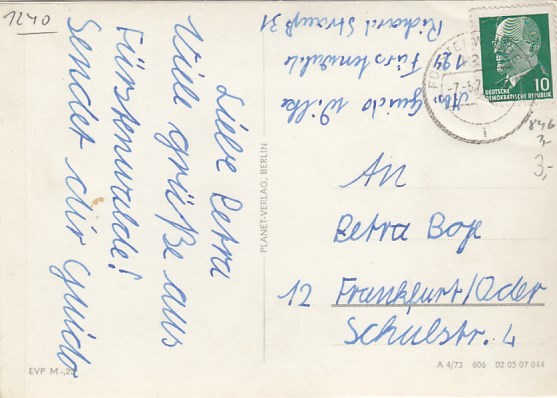 1240
Liebe Petra
Viele grüße aus
Fürstenwalde!
Sendet dir Guido
EVP M -,25
PLANET-VERLAG, BERLIN
Abs. Guido Wilke
124 Fürstenwalde
Richard Strauß 31
DEUTSCHE
DEMOKRATISCHE REPUBLIK
10
846
3,-
An
Petra Boje
12 Frankfurt/Oder
Schulstr. 4
A 4/73 606 02 05 07 044